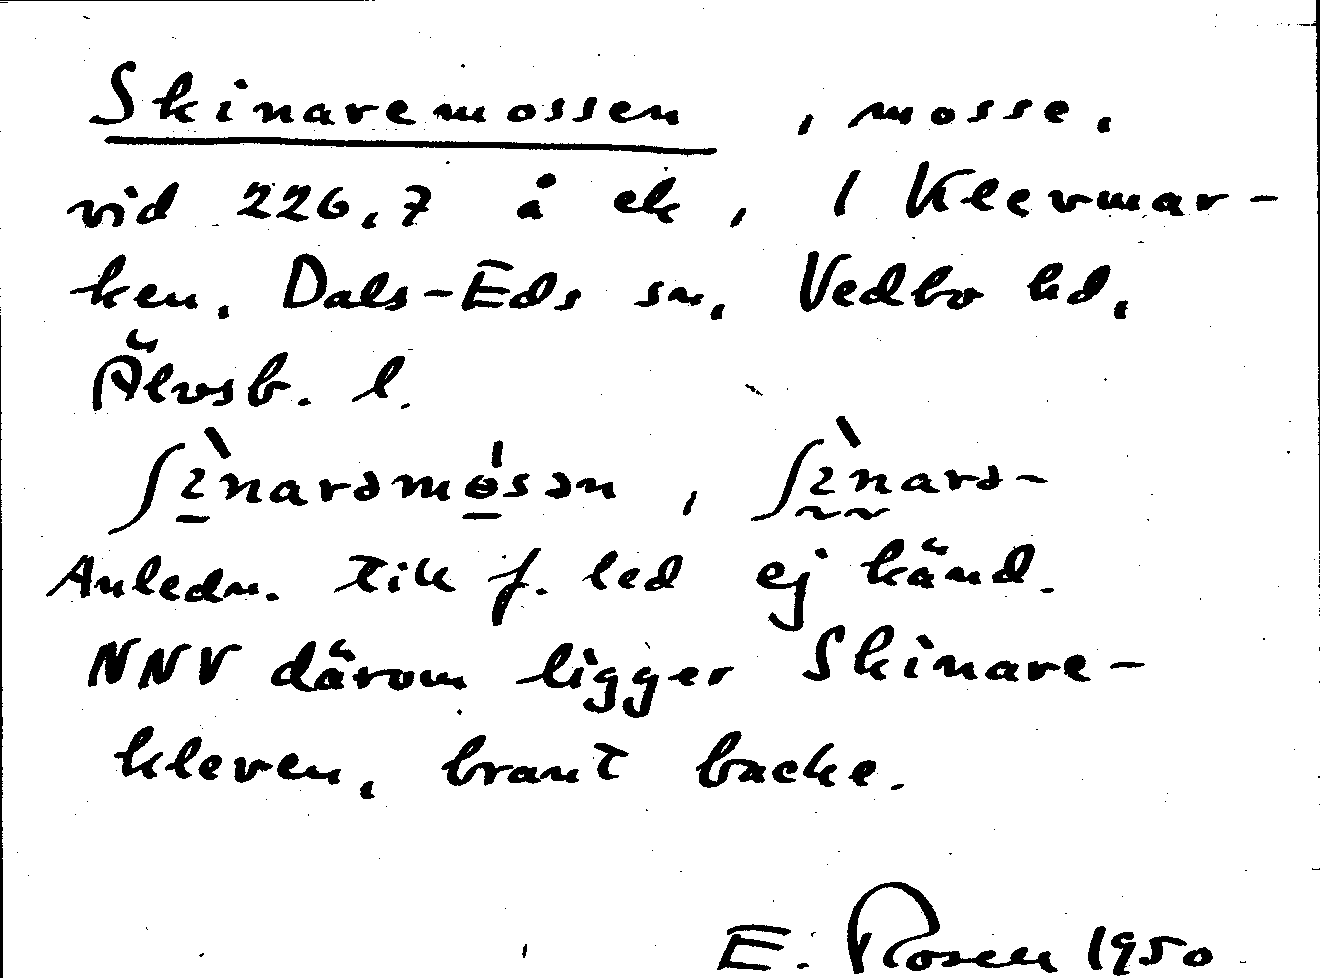 Skinaremossen, mosse,
vid 226,7 å ek, i Klevmar-
ken, Dals-Eds sn, Vedbo hd,
Älvsb. l.
ʃɪ̀narəmɵ̍sən, ʃɪ̀narə-
Anledn. till f. led ej känd.
NNV därom ligger Skinare-
kleven, brant backe.
E. Rosen 1950